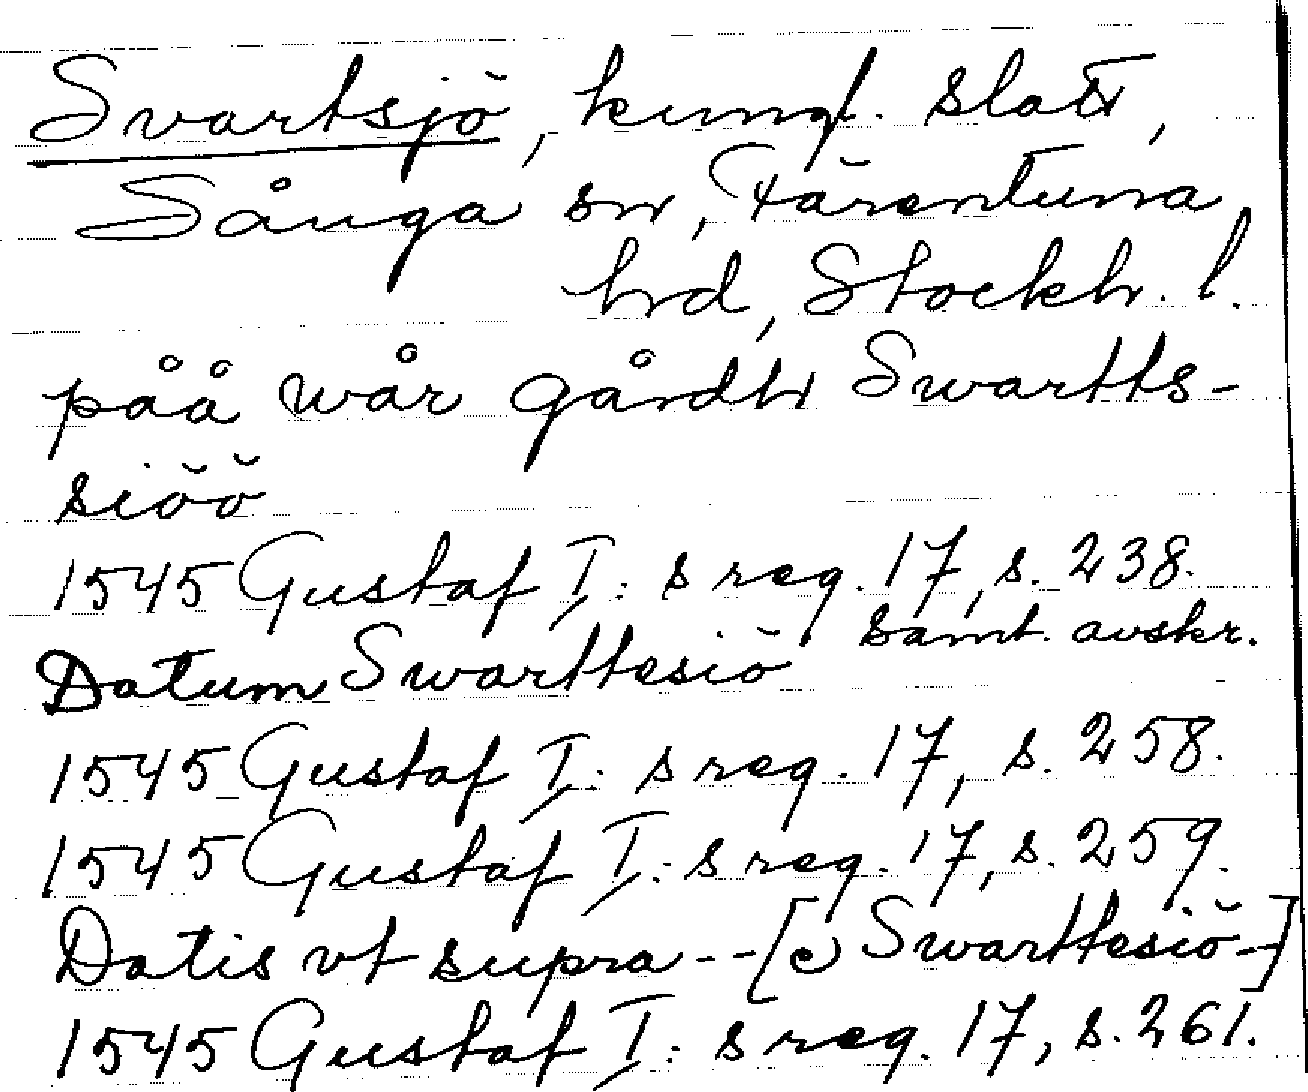 Svartsjö, kungl. slott,
Sånga sn, Färentuna
hrd, Stockh. l.
påå wår gårdh Swartts-
siöö
1545 Gustaf I: s reg. 17, s. 238.
samt. avskr.
Datum Swarttesiö
1545 Gustaf I: s reg. 17, s. 258.
1545 Gustaf I: s reg. 17, s. 259.
Datis vt supra - - [ɔ Swarttesiö-]
1545 Gustaf I: s reg. 17, s. 261.